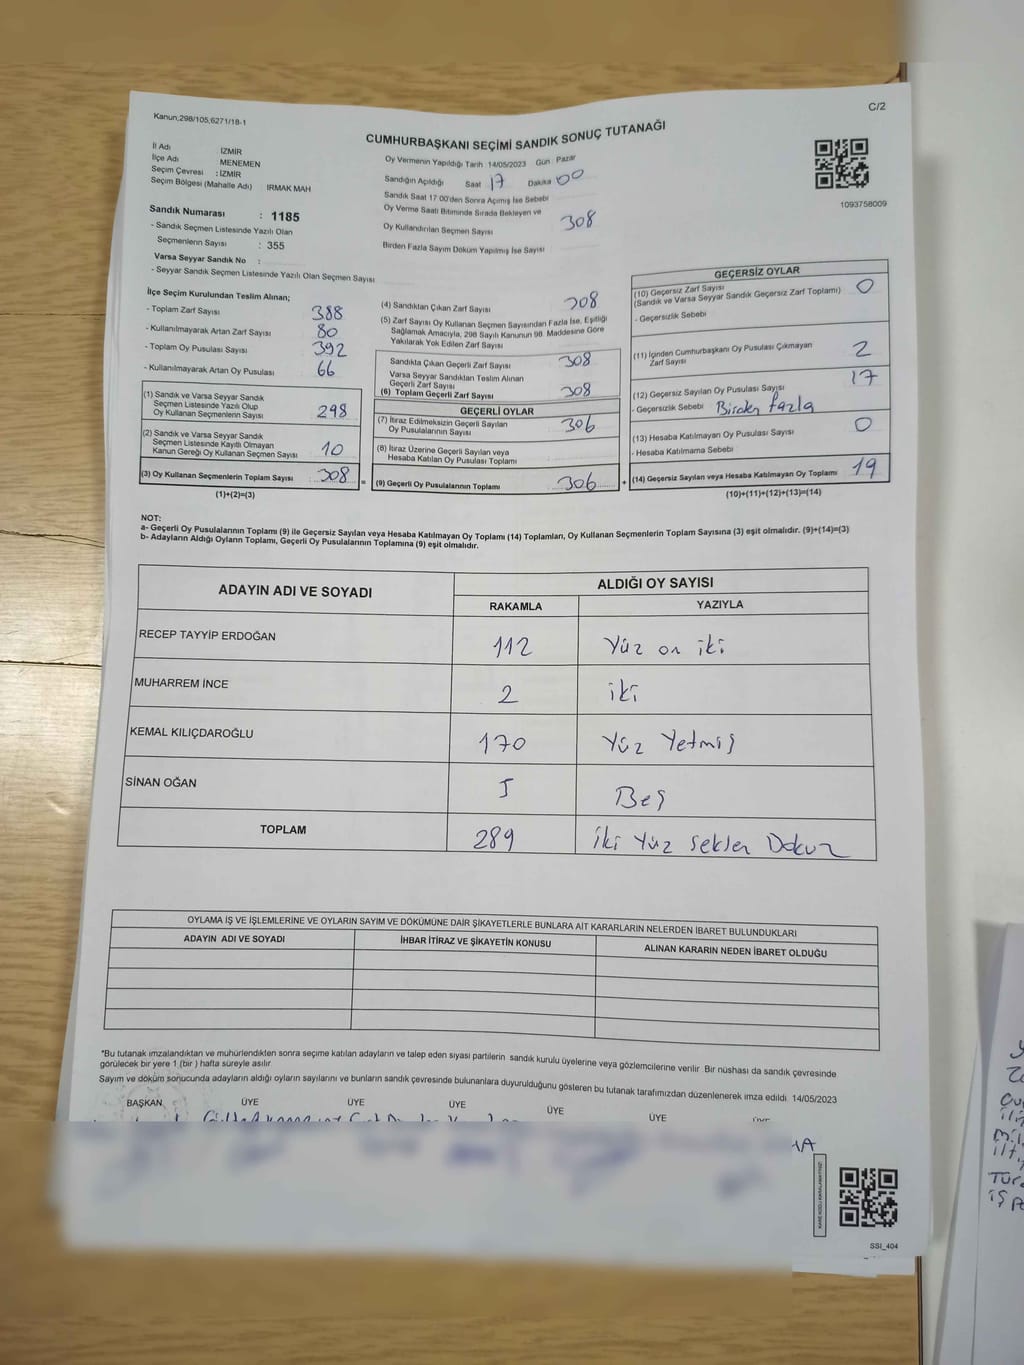 Kanun,298/105,6271/18-1
C/2
CUMHURBAŞKANI SEÇİMİ SANDIK SONUÇ TUTANAĞI
İl Adı : İZMİR
İlçe Adı : MENEMEN
Seçim Çevresi : İZMİR
Seçim Bölgesi (Mahalle Adı) IRMAK MAH
Oy Vermenin Yapıldığı Tarih 14/05/2023 Gün Pazar
Sandığın Açıldığı Saat 17 Dakika 00
Sandık Saat 17 00'den Sonra Açımış İse Sebebi
Oy Verme Saati Bitiminde Sırada Bekleyen ve
Oy Kullandırılan Seçmen Sayısı 308
Birden Fazla Sayım Döküm Yapılmış İse Sayısı
1093758009
Sandık Numarası : 1185
- Sandık Seçmen Listesinde Yazılı Olan
Seçmenlerin Sayısı : 355
Varsa Seyyar Sandık No :
- Seyyar Sandık Seçmen Listesinde Yazılı Olan Seçmen Sayısı
İlçe Seçim Kurulundan Teslim Alınan;
- Toplam Zarf Sayısı 388
- Kullanılmayarak Artan Zarf Sayısı 80
- Toplam Oy Pusulası Sayısı 392
- Kullanılmayarak Artan Oy Pusulası 66
(1) Sandık ve Varsa Seyyar Sandık
Seçmen Listesinde Yazılı Olup
Oy Kullanan Seçmenlerin Sayısı 298
(2) Sandık ve Varsa Seyyar Sandık
Seçmen Listesinde Kayıtlı Olmayan
Kanun Gereği Oy Kullanan Seçmen Sayısı 10
(3) Oy Kullanan Seçmenlerin Toplam Sayısı 308
(1)+(2)=(3)
=
(4) Sandıktan Çıkan Zarf Sayısı 308
(5) Zarf Sayısı Oy Kullanan Seçmen Sayısından Fazla İse, Eşitliği
Sağlamak Amacıyla, 298 Sayılı Kanunun 98. Maddesine Göre
Yakılarak Yok Edilen Zarf Sayısı
Sandıkta Çıkan Geçerli Zarf Sayısı 308
Varsa Seyyar Sandıktan Teslim Alınan
Geçerli Zarf Sayısı
(6) Toplam Geçerli Zarf Sayısı 308
GEÇERLİ OYLAR
(7) İtiraz Edilmeksizin Geçerli Sayılan
Oy Pusulalarının Sayısı 306
(8) İtiraz Üzerine Geçerli Sayılan veya
Hesaba Katılan Oy Pusulası Toplamı
(9) Geçerli Oy Pusulalarının Toplamı 306
+
GEÇERSİZ OYLAR
(10) Geçersiz Zarf Sayısı 0
(Sandık ve Varsa Seyyar Sandık Geçersiz Zarf Toplamı)
- Geçersizlik Sebebi
(11) İçinden Cumhurbaşkanı Oy Pusulası Çıkmayan
Zarf Sayısı 2
(12) Geçersiz Sayılan Oy Pusulası Sayısı 17
- Geçersizlik Sebebi Birden fazla
(13) Hesaba Katılmayan Oy Pusulası Sayısı 0
- Hesaba Katılmama Sebebi
(14) Geçersiz Sayılan veya Hesaba Katılmayan Oy Toplamı 19
(10)+(11)+(12)+(13)=(14)
NOT:
a- Geçerli Oy Pusulalarının Toplamı (9) ile Geçersiz Sayılan veya Hesaba Katılmayan Oy Toplamı (14) Toplamları, Oy Kullanan Seçmenlerin Toplam Sayısına (3) eşit olmalıdır. (9)+(14)=(3)
b- Adayların Aldığı Oyların Toplamı, Geçerli Oy Pusulalarının Toplamına (9) eşit olmalıdır.
ADAYIN ADI VE SOYADI
ALDIĞI OY SAYISI
RAKAMLA YAZIYLA
RECEP TAYYİP ERDOĞAN 112 Yüz on iki
MUHARREM İNCE 2 iki
KEMAL KILIÇDAROĞLU 170 Yüz Yetmiş
SİNAN OĞAN 5 Beş
TOPLAM 289 iki Yüz seksen Dokuz
OYLAMA İŞ VE İŞLEMLERİNE VE OYLARIN SAYIM VE DÖKÜMÜNE DAİR ŞİKAYETLERLE BUNLARA AİT KARARLARIN NELERDEN İBARET BULUNDUKLARI
ADAYIN ADI VE SOYADI İHBAR İTİRAZ VE ŞİKAYETİN KONUSU ALINAN KARARIN NEDEN İBARET OLDUĞU
*Bu tutanak imzalandıktan ve mühürlendikten sonra seçime katılan adayların ve talep eden siyasi partilerin sandık kurulu üyelerine veya gözlemcilerine verilir. Bir nüshası da sandık çevresinde
görülecek bir yere 1 (bir ) hafta süreyle asılır
Sayım ve döküm sonucunda adayların aldığı oyların sayılarını ve bunların sandık çevresinde bulunanlara duyurulduğunu gösteren bu tutanak tarafımızdan düzenlenerek imza edildi. 14/05/2023
BAŞKAN ÜYE ÜYE ÜYE ÜYE ÜYE ÜYE
SSI_404